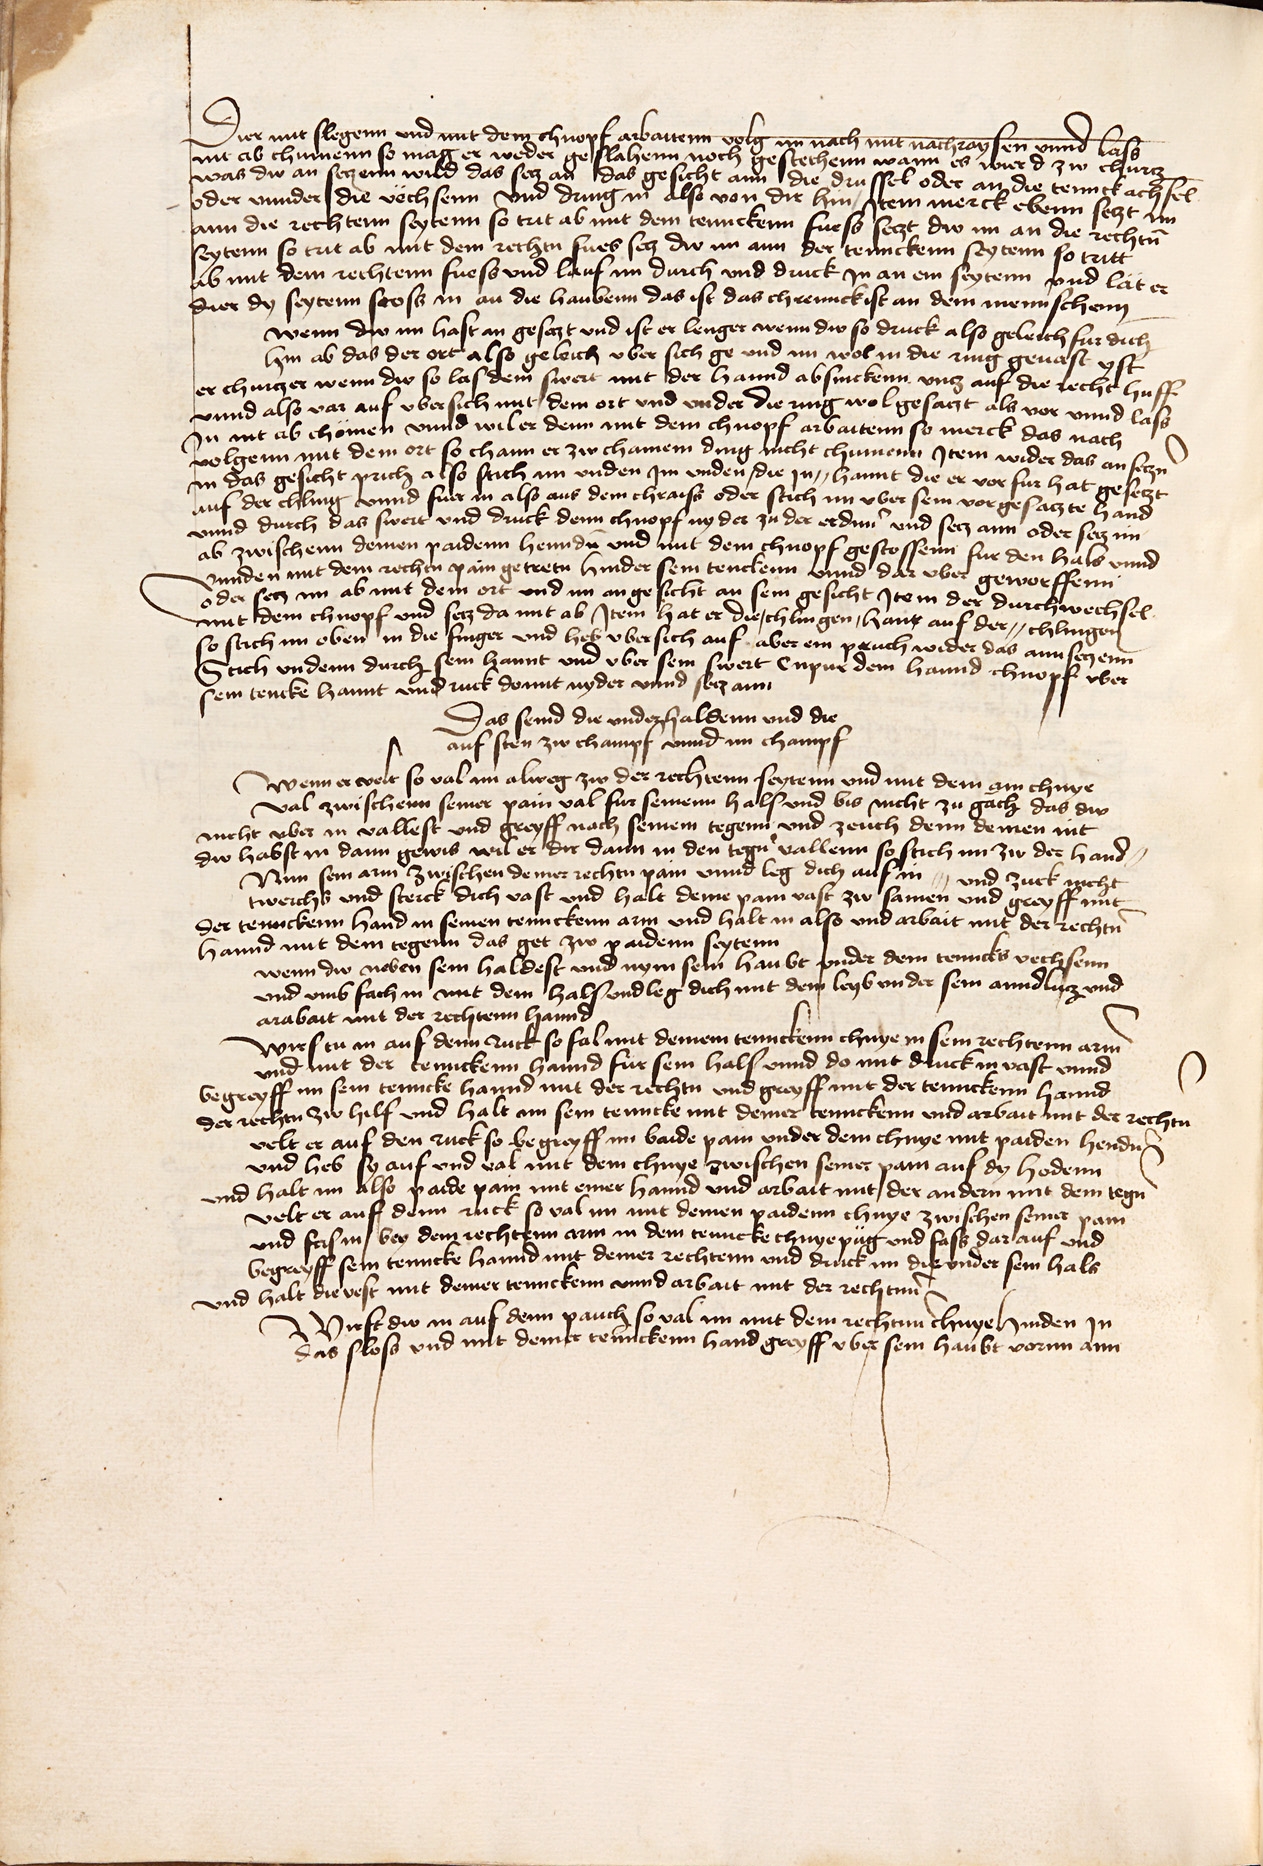 Dier mit slegenn vnd mit dem chnopf arbaitenn volg im nach mit nachraysen vnnd lass
nit ab chumenn so mag er weder geslahenn noch gestechenn wann es wierd zw churcz
was dw an seczenn wild das secz an das gesicht ann die drussel oder an die tennck achsel
oder vnnder die vëchsenn vnd dring in also von dir hin Item merck ebenn seczt im
ann die rechtenn seytenn so trit ab mit dem tennckenn fuess seczt dw im an die rechtn̄
seytenn so trit ab mit dem rechtn fues secz dw im ann der tennckenn seytenn so tritt
ab mit dem rechtenn fuess vnd lauf im durch vnd druck In an ein seytenn vnd lät er
dier dy seytenn stoss in an die haubenn das ist das chrennckist an dem mennschenn
wenn dw im hast an gesaczt vnd ist er lenger wenn dw so druck also geleich fur dich
hin ab das der ort also geleich vber sich ge vnd im wol in die ring geuast yst
er churczer wenn dw so las dein swert mit der hannd absinckenn vncz auf die recht huff
vnnd also var auf vbersich mit dem ort vnd vnder die ring wol gesaczt als vor vnnd lass
In nit ab chömen vnnd wil er denn mit dem chnopf arbaitenn so merck das nach
volgenn mit dem ort so chann er zw chainem ding nicht chumenn Item wider das an seczn̄
in das gesicht prich also stich im vnden Im vnden die In hannt die er vor fur hat geseczt
auf der chling vnnd fuer in also aus dem chraiss oder stich im vber sein vorgesaczte hand
vnnd durch das swert vnd druck denn chnopf nyder zu der erdnn vnd secz ann oder secz im
ab zwischenn deinen paidenn henndn̄ vnd mit dem chnopf gestossenn fur den hals vnnd
vnnden mit dem rechtn pain getretn hinder sein tenckenn vnnd dar vber geworffenn
oder secz im ab mit dem ort vnd im angesicht an sein gesicht Item der durchwechsel
mit dem chnopf vnd secz da mit ab Item hat er die chlingen hant auf der chlingen
so stich im oben in die finger vnd heb vbersich auf aber ein pruch wider das ann seczenn
Stich vndenn durch sein hannt vnd vber sein swert dem hannd chnopf vber
sein tencke hannt vnd ruck domit nyder vnnd secz ann
Das seind die vnderhaldenn vnd die
auf sten zw champf vnnd im champf
Wenn er velt so val im alweg zw der rechtenn seytenn vnd mit dem ain chnye
val zwischenn seiner pain val fur seinenn hals vnd bis nicht zu gach das dw
nicht vber in vallest vnd greyff nach seinem tegenn vnd zeuch denn deinen nit
dw habst in dann gewis wil er dir dann in den tegn vallenn so stich im zw der hand
Nim sein arm zwischen deiner rechtn pain vnnd leg dich auf in vnd zuck nicht
twerchs vnd sterck dich vast vnd halt deine pain vast zw samen vnd greyff mit
der tennckenn hand in seinen tennckenn arm vnd halt in also vnd arbait mit der rechtn̄
hannd mit dem tegenn das get zw paidenn seytenn
wenn dw neben sein haldest vnd nym sein haubt vnder dein tenncks vechsenn
vnd vmb fach in mit dem hals vnd leg dich mit dem leyb vnder sein anndlucz vnd
arabait mit der rechtenn hannd
Wirfstu in auf denn Ruck so fal mit deinem tennckenn chnye in sein rechtenn arm
vnd mit der tennckenn hannd fur sein hals vnnd do mit druck in vast vnnd
begreyff im sein tenncke hannd mit der rechtn vnd greyff mit der tennckenn hannd
der rechtn zw hilf vnd halt im sein tenncke mit deiner tennckenn vnd arbait mit der rechtn
velt er auf den ruck so begreyff im baide pain vnder dem chnye mit paiden hendn
vnd heb sy auf vnd val mit dem chnye zwischen seiner pain auf dy hodenn
vnd halt im also paide pain mit einer hannd vnd arbait mit der andern mit dem tegn
velt er auf denn ruck so val im mit deinen paidenn chnye zwischen seiner pain
vnd fas in bey dem rechtenn arm in dem tenncke chnyepüg vnd sass dar auf vnd
begreyff sein tenncke hannd mit deiner rechtenn vnd druck im die vnder sein hals
vnd halt die vest mit deiner tennckenn vnnd arbait mit der rechtnn
Wirfst dw in auf denn pauch so val im mit dem rechtnn chnye hinden In
das sloss vnd mit deiner tennckenn hand greyff vber sein haubt vornn ann